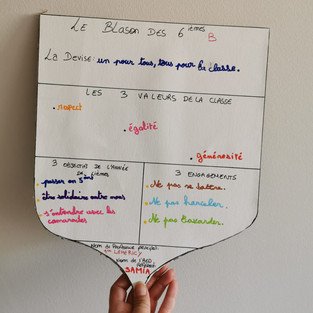 LE BLASON DES 6 ièmes B
La Devise: un pour tous, tous pour la classe.
LES 3 VALEURS DE LA CLASSE
• respect
• égalité
• générosité
3 OBJECTIFS DE L'ANNÉE
passer en 5ème
être solidaire entre nous
s'entendre avec les camarades
3 ENGAGEMENTS
Ne pas se battre.
Ne pas harceler.
Ne pas bavarder.
Nom du Professeur principal:
Nom de l'AED référent
SAMIA